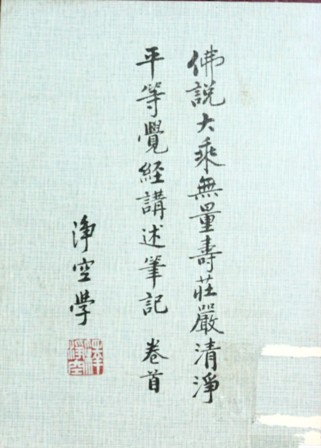 佛說大乘無量壽莊嚴清淨
平等覺經講述筆記 卷首
淨空學